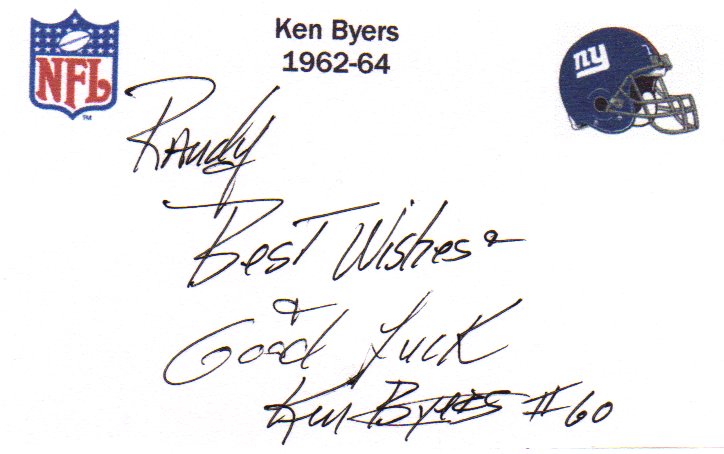 NFL
TM
Ken Byers
1962-64
ny
Randy
Best Wishes &
&
Good Luck
Ken Byers #60